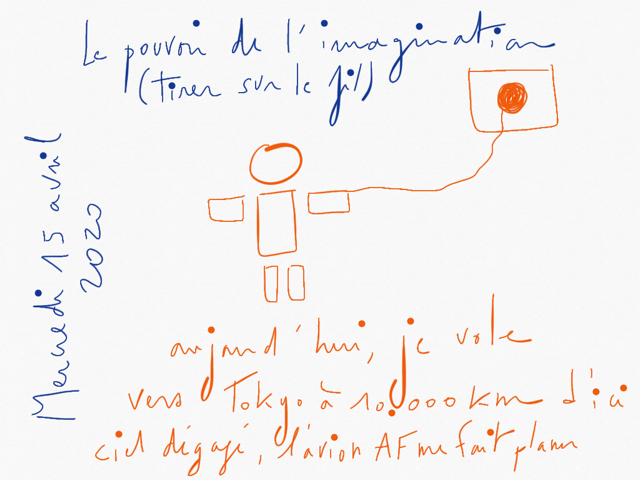 Le pouvoir de l'imagination
(tirer sur le fil)
Mercredi 15 avril
2020
aujourd'hui, je vole
vers Tokyo à 10.000 km d'ici
ciel dégagé, l'avion AF me fait planer